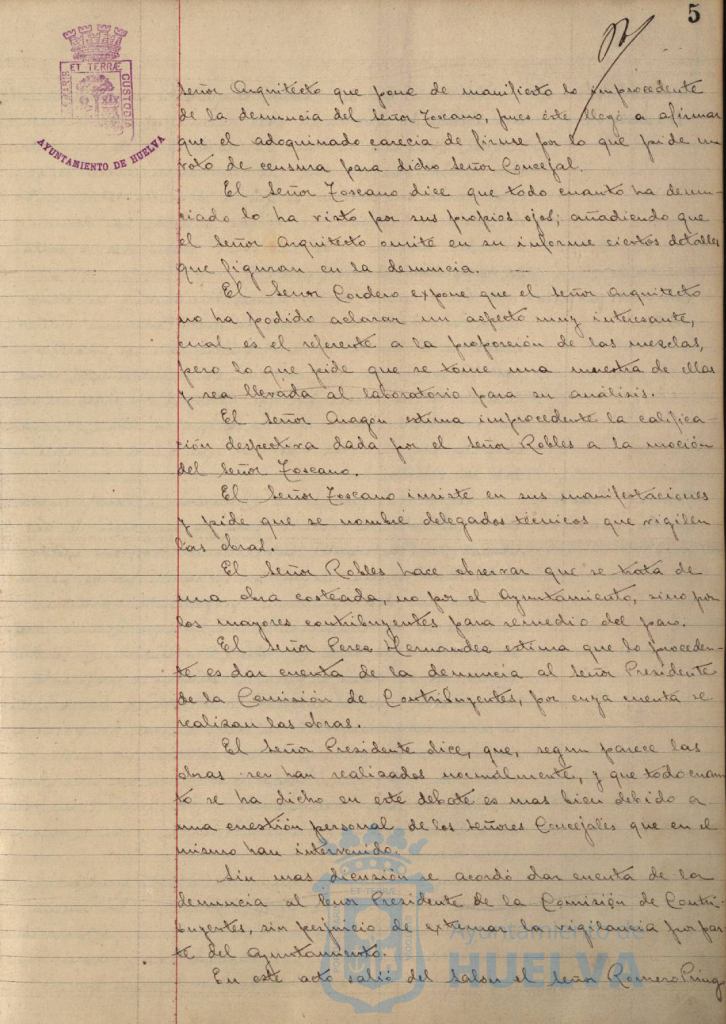 5
PORTUS MARIS
ET TERRÆ
CUSTODIA
AYUNTAMIENTO DE HUELVA
señor Arquitecto que pone de manifiesto lo improcedente
de la denuncia del señor Toscano, pues éste llegó a afirmar
que el adoquinado carecia de firme por lo que pide un
voto de censura para dicho señor Concejal.
El señor Toscano dice que todo cuanto ha denun-
ciado lo ha visto por sus propios ojos; añadiendo que
el señor Arquitecto omite en su informe ciertos detalles
que figuran en la denuncia.
El señor Cordero expone que el señor Arquitecto
no ha podido aclarar un aspecto muy interesante,
cual es el referente a la proporción de las mezclas,
pero lo que pide que se tome una muestra de ellas
y sea llevada al laboratorio para su análisis.
El señor Aragón estima improcedente la califica-
ción despectiva dada por el señor Robles a la moción
del señor Toscano.
El señor Toscano insiste en sus manifestaciones
y pide que se nombre delegados técnicos que vigilen
las obras.
El señor Robles hace observar que se trata de
una obra costeada, no por el Ayuntamiento, sino por
los mayores contribuyentes para remedio del paro.
El señor Perez Hernandez estima que lo proceden-
te es dar cuenta de la denuncia al señor Presidente
de la Comisión de Contribuyentes, por cuya cuenta se
realizan las obras.
El señor Presidente dice, que, segun parece las
obras ser han realizados normalmente, y que todo cuan-
to se ha dicho en este debate es mas bien debido a
una cuestión personal de los señores Concejales que en el
mismo han intervenido.
Sin mas dicusión se acordó dar cuenta de la
denuncia al señor Presidente de la Comisión de Contri-
buyentes, sin perjuicio de extremar la vigilancia por par-
te del Ayuntamiento.
En este acto salió del salon el señor Romero
Ayuntamiento de
HUELVA